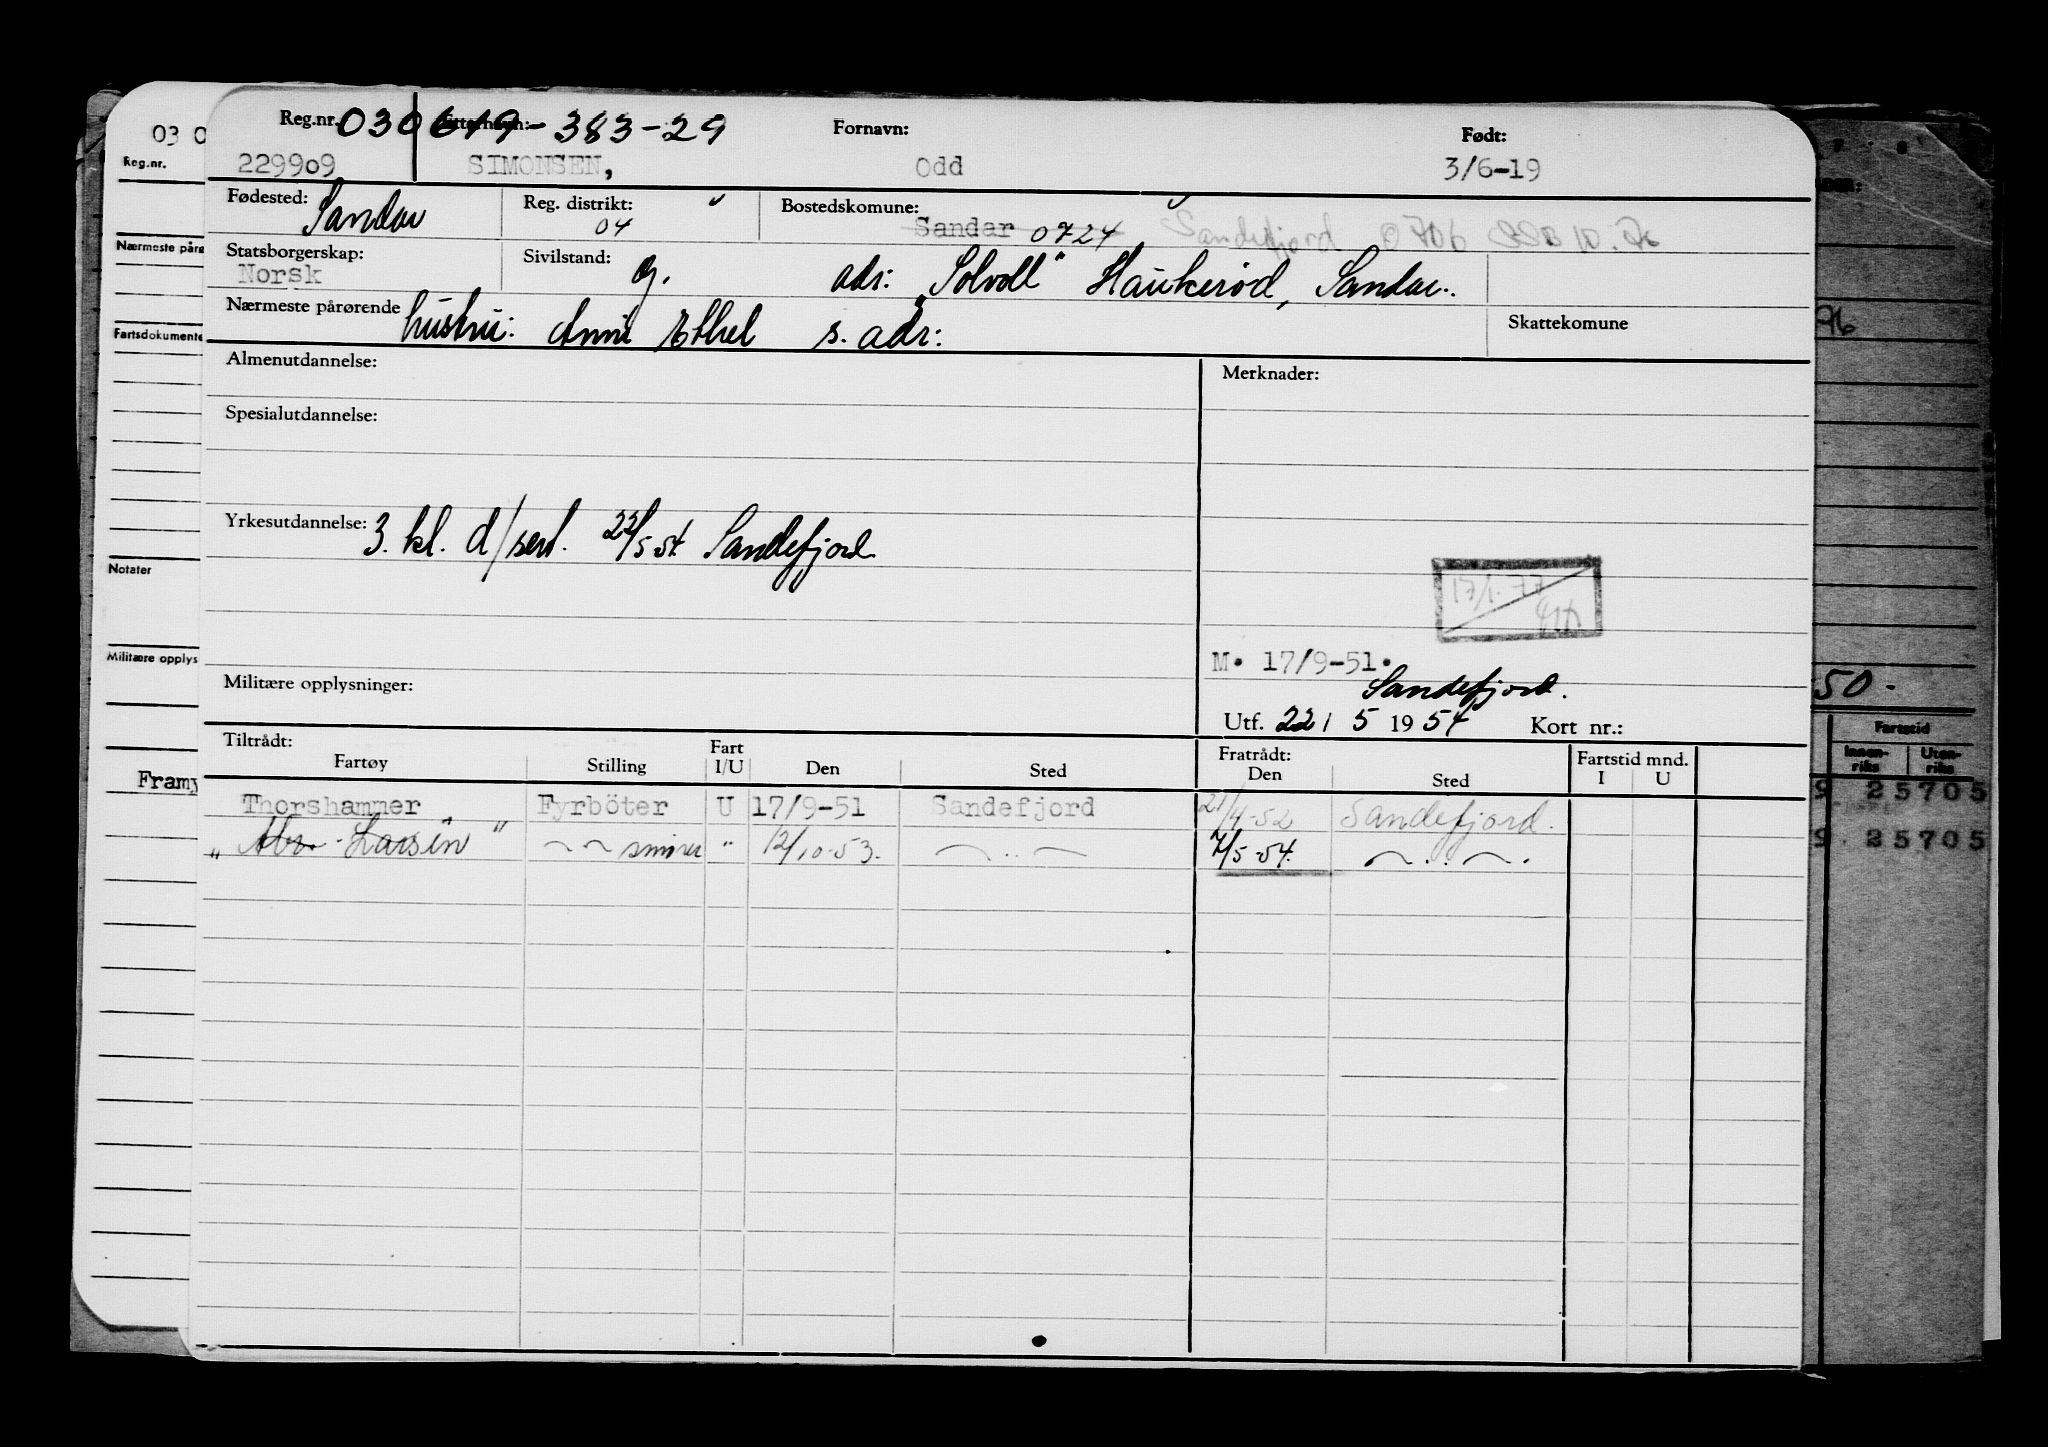 Reg.nr. 030619-383-29 Etternavn: Fornavn: Født:
229909 SIMONSEN, Odd 3/6-19
Fødested: Sandar Reg. distrikt: 04 Bostedskommune: Sandar 0724 Sandefjord 0706 SSB 10.76
Statsborgerskap: Norsk Sivilstand: g. adr: "Solvoll" Haukerød, Sandar.
Nærmeste pårørende hustru: Anni Ethel s. adr: Skattekomune
Almenutdannelse: Merknader:
Spesialutdannelse:
Yrkesutdannelse: 3. kl. d/sert. 22/5-54 Sandefjord
17/1.77
M. 17/9-51.
Militære opplysninger: Sandefjord.
Utf. 22/ 5 1954 Kort nr.:
Tiltrådt: Fratrådt:
Fartøy Stilling Fart I/U Den Sted Den Sted Fartstid mnd. I U
Thorshammer Fyrböter U 17/9-51 Sandefjord 21/4-52 Sandefjord.
"Abr. Larsen" smører " 12/10-53. 7/5-54.
03 0
Reg.nr.
Nærmeste pårø
Fartsdokumente
Notater
Militære opplys
Framy
96
50.
Fartstid
Innen-riks Uten-riks
9 25705
9. 25705